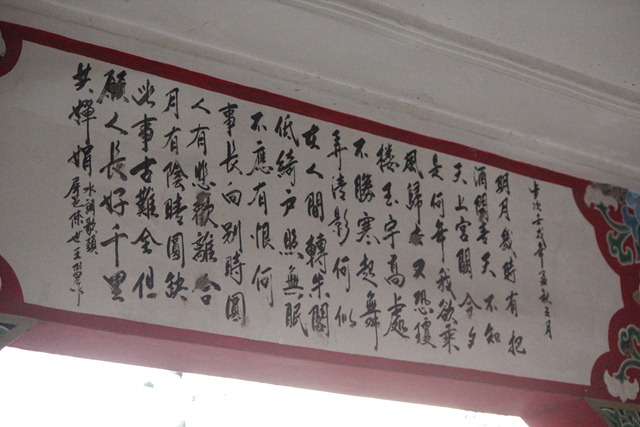 歲次壬戌年孟秋之月
明月幾時有把
酒問青天不知
天上宮闕今夕
是何年我欲乘
風歸去又恐瓊
樓玉宇高處
不勝寒起舞
弄清影何似
在人間轉朱閣
低綺戶照無眠
不應有恨何
事長向別時圓
人有悲歡離合
月有陰晴圓缺
此事古難全但
願人長好千里
共嬋娟
水調歌頭
屏邑陳世王習作